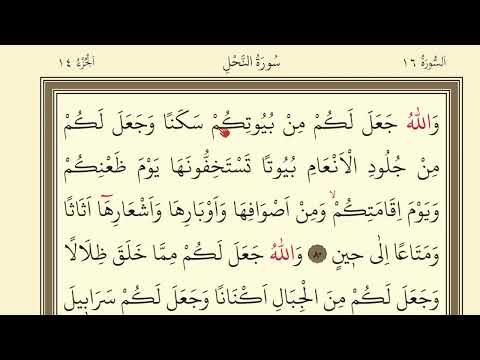 اَلسُّورَةُ ١٦ سُورَةُ النَّحْلِ اَلْجُزْءُ ١٤
وَاللّٰهُ جَعَلَ لَكُمْ مِنْ بُيُوتِكُمْ سَكَنًا وَجَعَلَ لَكُمْ
مِنْ جُلُودِ الْاَنْعَامِ بُيُوتًا تَسْتَخِفُّونَهَا يَوْمَ ظَعْنِكُمْ
وَيَوْمَ اِقَامَتِكُمْۙ وَمِنْ اَصْوَافِهَا وَاَوْبَارِهَا وَاَشْعَارِهَٓا اَثَاثًا
وَمَتَاعًا اِلٰى ح۪ينٍ ٨٠ وَاللّٰهُ جَعَلَ لَكُمْ مِمَّا خَلَقَ ظِلَالًا
وَجَعَلَ لَكُمْ مِنَ الْجِبَالِ اَكْنَانًا وَجَعَلَ لَكُمْ سَرَاب۪يلَ